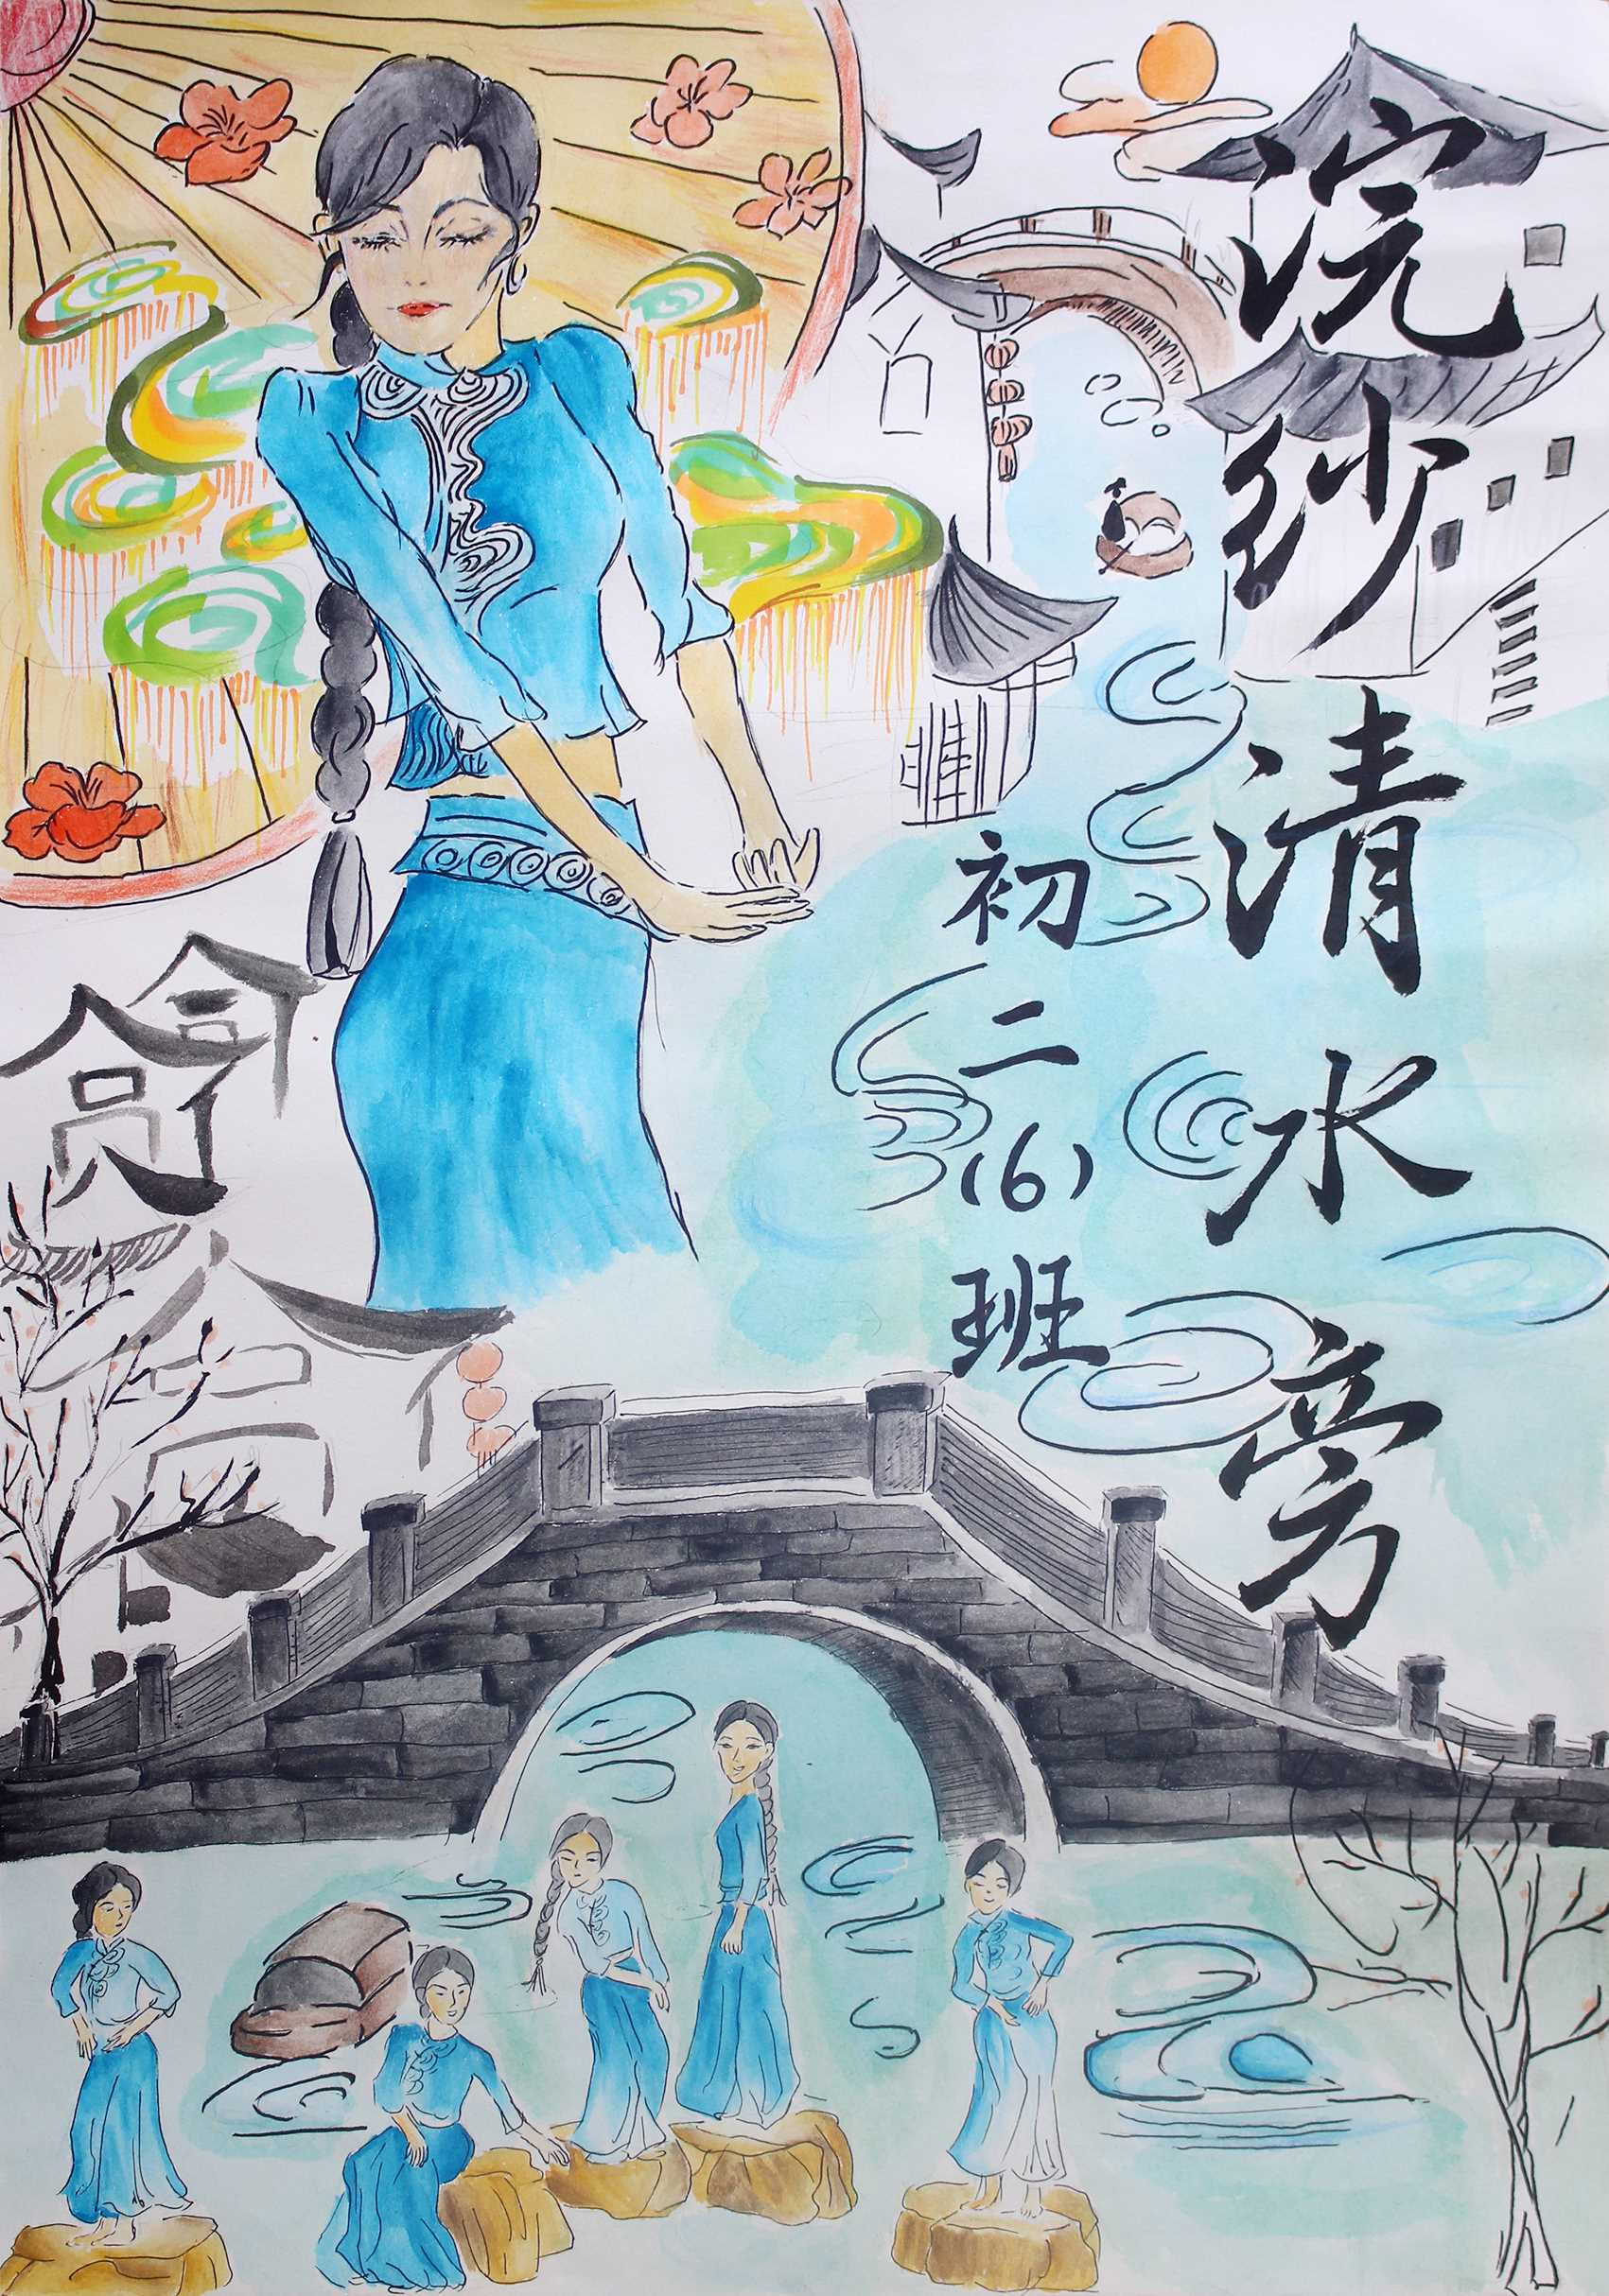 浣纱清水旁
初二(6)班